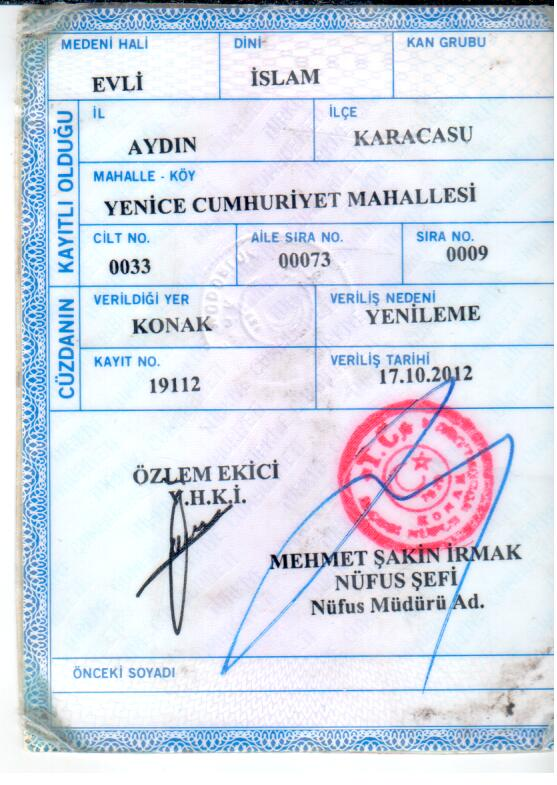 MEDENİ HALİ
EVLİ
DİNİ
İSLAM
KAN GRUBU
KAYITLI OLDUĞU
İL
AYDIN
İLÇE
KARACASU
MAHALLE - KÖY
YENİCE CUMHURİYET MAHALLESİ
CİLT NO.
0033
AİLE SIRA NO.
00073
SIRA NO.
0009
CÜZDANIN
VERİLDİĞİ YER
KONAK
VERİLİŞ NEDENİ
YENİLEME
KAYIT NO.
19112
VERİLİŞ TARİHİ
17.10.2012
T.C.
KONAK
ÖZLEM EKİCİ
V.H.K.İ.
MEHMET ŞAKİN IRMAK
NÜFUS ŞEFİ
Nüfus Müdürü Ad.
ÖNCEKİ SOYADI